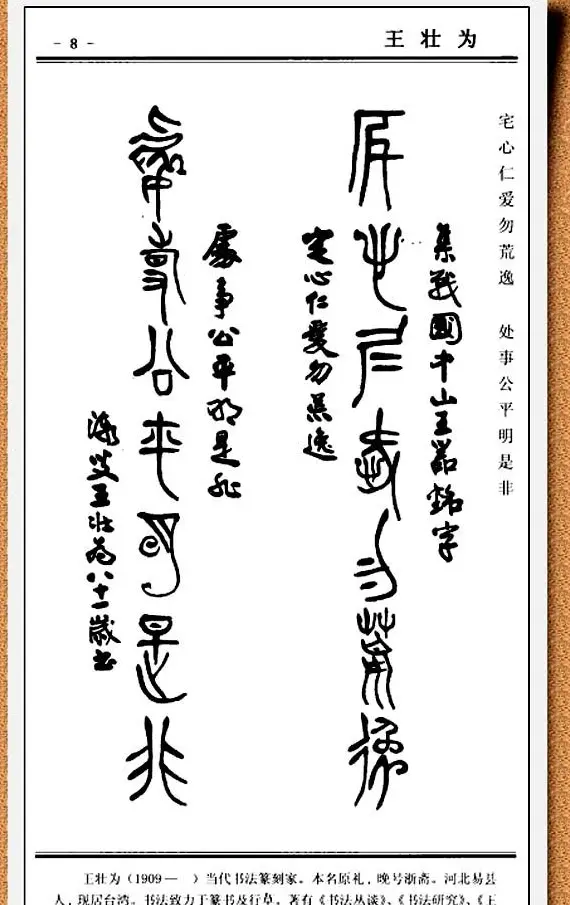 - 8 -
王壮为
宅心仁爱勿荒逸 处事公平明是非
集戰國中山王器銘字
宅心仁愛勿荒逸
宅心仁愛勿荒逸
處事公平明是非
處事公平明是非
漸叟王壯為八十一歲書
王壮为(1909— )当代书法篆刻家。本名原礼,晚号渐斋。河北易县
人,现居台湾。书法致力于篆书及行草。著有《书法丛谈》、《书法研究》、《王